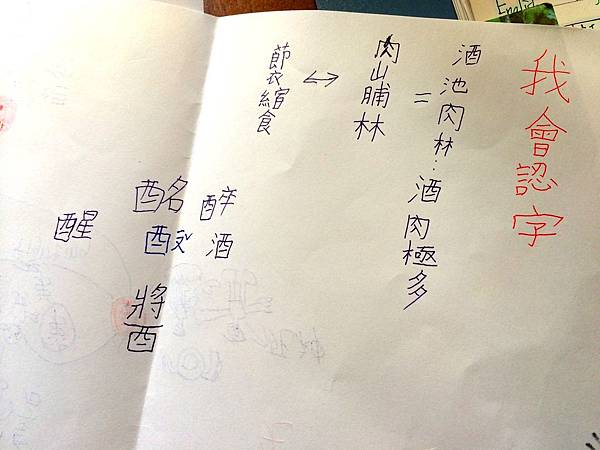 English
我會認字
酒池肉林:酒肉極多
=
肉山脯林
↔
節衣縮食
醉
酒
酩
醬
醒